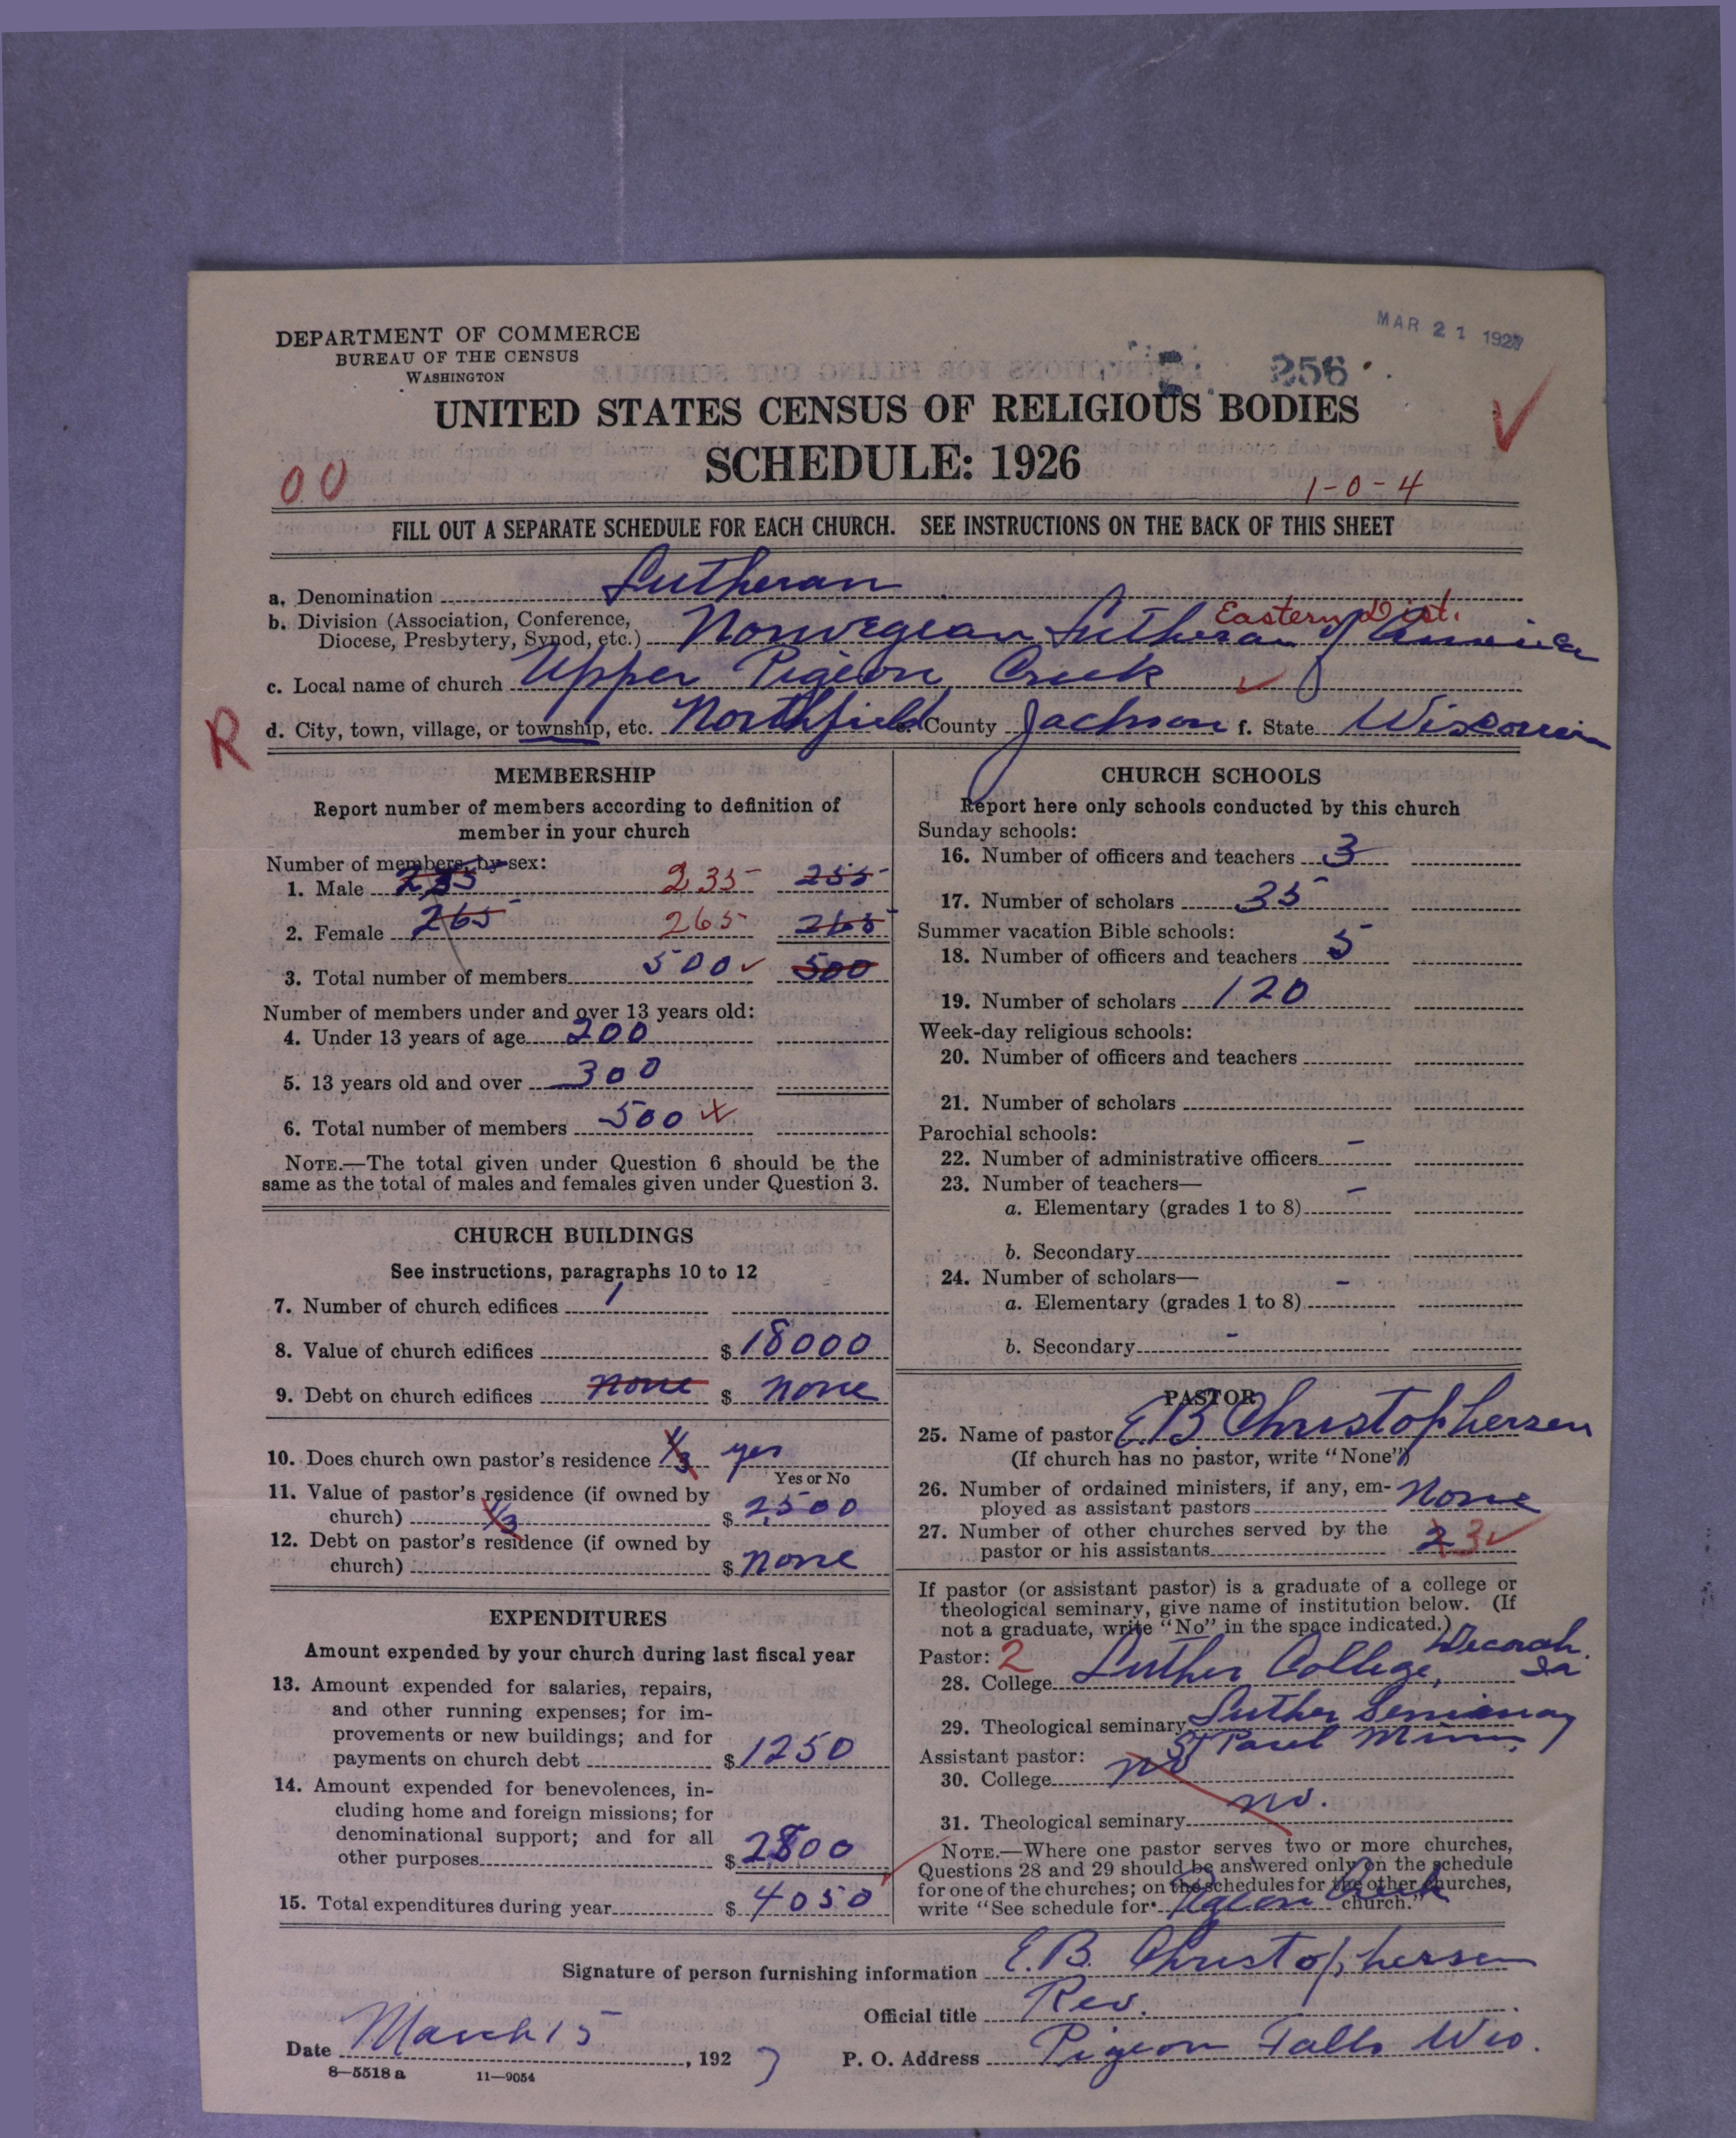 DEPARTMENT OF COMMERCE
BUREAU OF THE CENSUS
WASHINGTON
MAR 21 1927
256
UNITED STATES CENSUS OF RELIGIOUS BODIES
SCHEDULE: 1926
00
1-0-4
FILL OUT A SEPARATE SCHEDULE FOR EACH CHURCH. SEE INSTRUCTIONS ON THE BACK OF THIS SHEET
a. Denomination Lutheran
Eastern Dist.
b. Division (Association, Conference, Diocese, Presbytery, Synod, etc.) Norwegian Lutheran of America
c. Local name of church Upper Pigeon Creek
R
d. City, town, village, or township, etc. Northfield e. County Jackson f. State Wisconsin
MEMBERSHIP
Report number of members according to definition of
member in your church
Number of members, by sex:
1. Male 235 235 235
2. Female 265 265 265
3. Total number of members 500 500
Number of members under and over 13 years old:
4. Under 13 years of age 200
5. 13 years old and over 300
6. Total number of members 500
NOTE.—The total given under Question 6 should be the
same as the total of males and females given under Question 3.
CHURCH BUILDINGS
See instructions, paragraphs 10 to 12
7. Number of church edifices 1
8. Value of church edifices $ 18000
9. Debt on church edifices none $ none
10. Does church own pastor's residence 1/3 yes
Yes or No
11. Value of pastor's residence (if owned by
church) 1/3 $ 2500
12. Debt on pastor's residence (if owned by
church) $ none
EXPENDITURES
Amount expended by your church during last fiscal year
13. Amount expended for salaries, repairs,
and other running expenses; for im-
provements or new buildings; and for
payments on church debt $ 1250
14. Amount expended for benevolences, in-
cluding home and foreign missions; for
denominational support; and for all
other purposes $ 2800
15. Total expenditures during year $ 4050
CHURCH SCHOOLS
Report here only schools conducted by this church
Sunday schools:
16. Number of officers and teachers 3
17. Number of scholars 35
Summer vacation Bible schools:
18. Number of officers and teachers 5
19. Number of scholars 120
Week-day religious schools:
20. Number of officers and teachers
21. Number of scholars
Parochial schools:
22. Number of administrative officers -
23. Number of teachers—
a. Elementary (grades 1 to 8) -
b. Secondary
24. Number of scholars—
a. Elementary (grades 1 to 8) -
b. Secondary -
PASTOR
25. Name of pastor E.B. Christophersen
(If church has no pastor, write "None")
26. Number of ordained ministers, if any, em-
ployed as assistant pastors None
27. Number of other churches served by the
pastor or his assistants 2 3
If pastor (or assistant pastor) is a graduate of a college or
theological seminary, give name of institution below. (If
not a graduate, write "No" in the space indicated.)
Pastor: 2
28. College Luther College, Decorah Ia
29. Theological seminary Luther Seminary
St Paul Minn.
Assistant pastor:
30. College no
31. Theological seminary no.
NOTE.—Where one pastor serves two or more churches,
Questions 28 and 29 should be answered only on the schedule
for one of the churches; on the schedules for the other churches,
write "See schedule for Pigeon Creek church."
Signature of person furnishing information E.B. Christophersen
Official title Rev.
Date March 15, 1927 P. O. Address Pigeon Falls Wis.
8—5518 a 11—9054